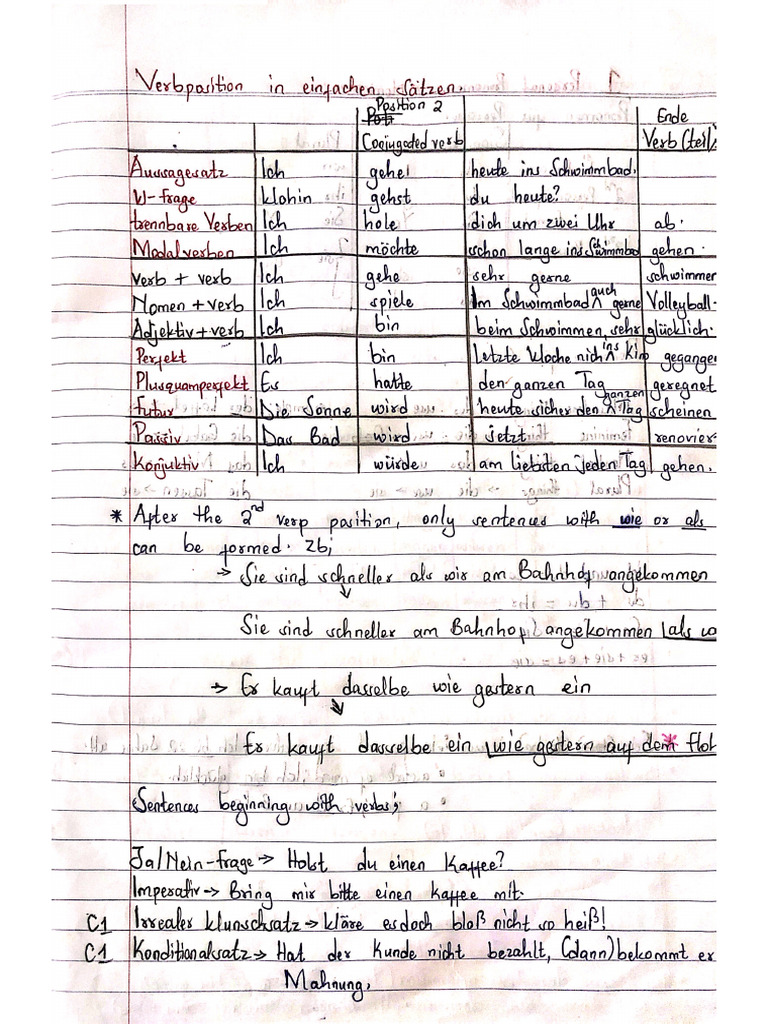 Verbposition in einfachen Sätzen.
Position 2 Ende
Conjugated verb Verb (teil)
Aussagesatz Ich gehe heute ins Schwimmbad.
W-frage Wohin gehst du heute?
trennbare Verben Ich hole dich um zwei Uhr ab.
Modalverben Ich möchte schon lange ins Schwimmbad gehen.
verb + verb Ich gehe sehr gerne schwimmen
Nomen + verb Ich spiele Im Schwimmbad auch gerne Volleyball.
Adjektiv + verb Ich bin beim Schwimmen, sehr glücklich.
Perfekt Ich bin letzte Woche nich ins Kino gegangen
Plusquamperfekt Es hatte den ganzen Tag geregnet
futur Die Sonne wird heute sicher den ganzen Tag scheinen
Passiv Das Bad wird jetzt renovier
Konjuktiv Ich würde am liebsten jeden Tag gehen.
* After the 2nd verp position, only sentences with wie or als
can be formed. Zb;
→ Sie sind schneller als wir am Bahnhof angekommen
Sie sind schneller am Bahnhof angekommen als w
→ Er kauft dasselbe wie gestern ein
Er kauft dasselbe ein wie gestern auf dem floh
Sentences beginning with verbs;
Ja/Nein-frage → Holst du einen Kaffee?
Imperativ → Bring mir bitte einen Kaffee mit.
C1 Irrealer Wunschsatz → Wäre es doch bloß nicht so heiß!
C1 Konditionalsatz → Hat der Kunde nicht bezahlt, (dann) bekommt er
Mahnung.